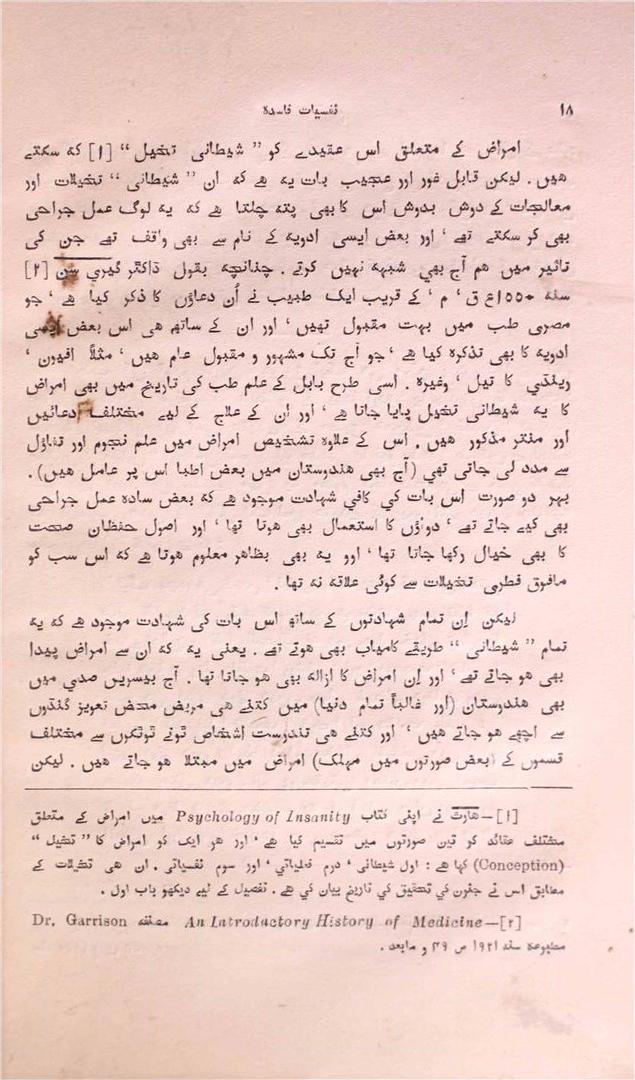 ۱۸ نفسیات فاسدہ
امراض کے متعلق اس عقیدے کو ” شیطانی تخیل “ [۱] کہ سکتے
ہیں . لیکن قابل غور اور عجیب بات یہ ہے کہ ان ” شیطانی “ تخیلات اور
معالجات کے دوش بدوش اس کا بھی پتہ چلتا ہے کہ یہ لوگ عمل جراحی
بھی کر سکتے تھے ‘ اور بعض ایسی ادویہ کے نام سے بھی واقف تھے جن کی
تاثیر میں ہم آج بھي شبہہ نہیں کرتے . چنانچہ بقول ڈاکٹر گیري سن [۲]
سنہ ۱۵۵۰ع ق ‘ م ‘ کے قریب ایک طبیب نے اُن دعاؤں کا ذکر کیا ہے ‘ جو
مصری طب میں بہت مقبول تھیں ‘ اور ان کے ساتھ ہی اس بعض ایسی
ادویہ کا بھی تذکرہ کیا ہے ‘ جو آج تک مشہور و مقبول عام ہیں ‘ مثلاً افیون ‘
رینڈي کا تیل ‘ وغیرہ . اسی طرح بابل کے علم طب کی تاریخ میں بھی امراض
کا یہ شیطانی تخیل پایا جاتا ہے ‘ اور اُن کے علاج کے لیے مختلف دعائیں
اور منتر مذکور ہیں . اس کے علاوہ تشخیص امراض میں علم نجوم اور تفاؤل
سے مدد لی جاتی تھي (آج بھی هندوستان میں بعض اطبا اس پر عامل ہیں) .
بہر دو صورت اس بات کی کافي شہادت موجود ہے کہ بعض سادہ عمل جراحی
بھی کیے جاتے تھے ‘ دواؤں کا استعمال بھی ہوتا تھا ‘ اور اصول حفظان صحت
کا بھی خیال رکھا جاتا تھا ‘ اوو یہ بھی بظاہر معلوم ہوتا ہے کہ اس سب کو
مافوق فطری تخیلات سے کوئی علاقہ نہ تھا .
لیکن اِن تمام شہادتوں کے ساتھ اس بات کی شہادت موجود ہے کہ یہ
تمام ” شیطانی “ طریقے کامیاب بھی ہوتے تھے . یعنی یہ کہ ان سے امراض پیدا
بھی ہو جاتے تھے ‘ اور اِن امراض کا ازالہ بھی ہو جاتا تھا . آج بیسریں صدي میں
بھی هندوستان (اور غالباً تمام دنیا) میں کتنے ہی مریض محض تعویز گنڈوں
سے اچھے ہو جاتے ہیں ‘ اور کتنے ہی تندرست اشخاص ٹونے ٹوٹکوں سے مختلف
قسموں کے (بعض صورتوں میں مہلک) امراض میں مبتلا ہو جاتے ہیں . لیکن
[۱]—ہارٹ نے اپنی کتاب Psychology of Insanity میں امراض کے متعلق
مختلف عقائد کو تین صورتوں میں تقسیم کیا ہے ‘ اور ہر ایک کو امراض کا ” تخیل “
(Conception) کہا ہے : اول شیطانی ‘ دوم خلیاتی ‘ اور سوم نفسیاتی . ان ہی تخیلات کے
مطابق اس نے جنون کی تحقیق کي تاریخ بیان کی ہے . تفصیل کے لیے دیکھو باب اول .
[۲]—An Introductory History of Medicine مصنفہ Dr. Garrison
مطبوعہ سنہ ۱۹۲۱ ص ۴۹ و مابعد .